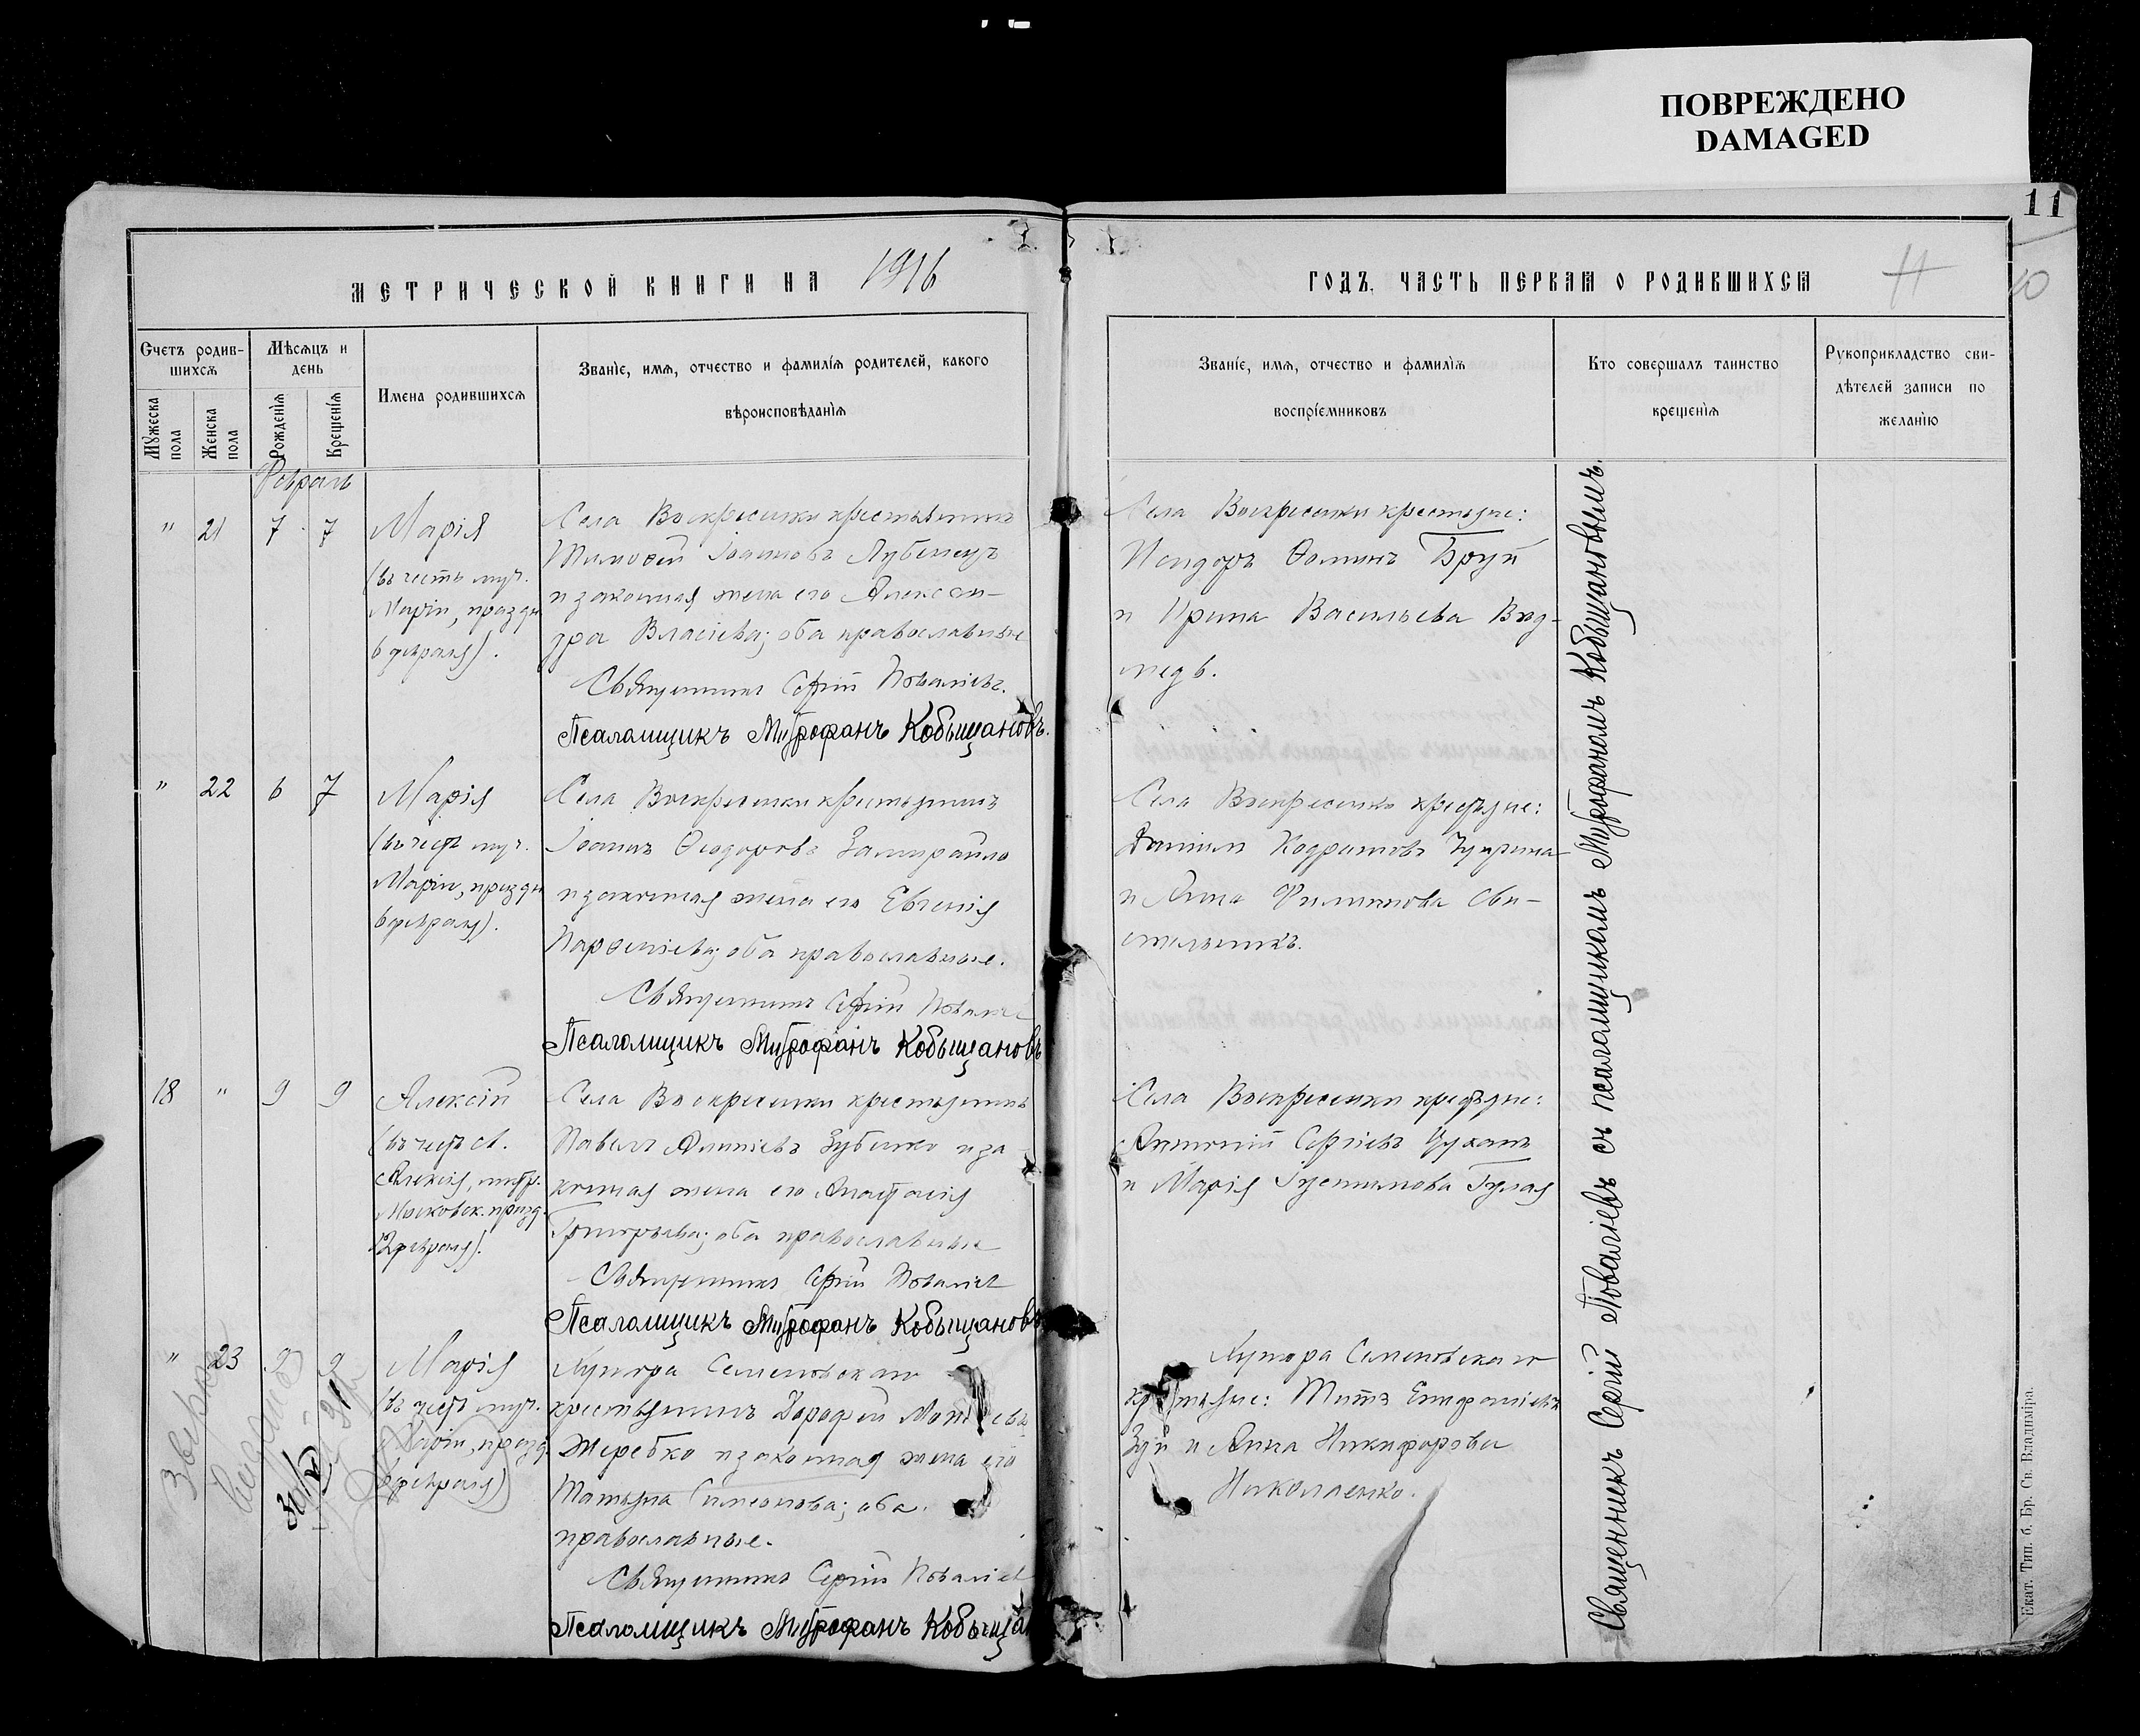 ПОВРЕЖДЕНО
DAMAGED
11
МЕТРИЧЕСКОЙ КНИГИ НА 1916
ГОДЪ. ЧАСТЬ ПЕРВАЯ О РОДИВШИХСЯ
11
10
Счетъ родив-
шихся
Мужеска пола
Женска пола
Мѣсяцъ и
день
Рожденія
Крещенія
Имена родившихся
Званіе, имя, отчество и фамилія родителей, какого
вѣроисповѣданія
Званіе, имя, отчество и фамилія
воспріемниковъ
Кто совершалъ таинство
крещенія
Рукоприкладство сви-
дѣтелей записи по
желанію
Февраль
" 21 7 7
Марія
(въ честь муч.
Маріи, праздн.
6 февраля).
Села Воскресенки крестьянинъ
Тимоѳей Іоанновъ Лубенецъ
и законная жена его Алексан-
дра Власіева; оба православные
Священникъ Сергій Поваліевъ.
Псаломщикъ Митрофанъ Кобыщановъ.
Села Воскресенки крестьяне:
Исидоръ Ѳоминъ Бруй
и Ирина Васильева
" 22 6 7
Марія
(въ честь муч.
Маріи, праздн.
6 февраля).
Села Воскресенки крестьянинъ
Іоаннъ Ѳеодоровъ Замирайло
и законная жена его Евгенія
Парѳеніева; оба православные.
Священникъ Сергій Поваліев
Псаломщикъ Митрофанъ Кобыщановъ
Села Воскресенки крестьяне:
Даніилъ Кодратовъ Чуприна
и Анна Филиппова Сви-
стельникъ.
18 " 9 9
Алексій
(въ честь св.
Алексія, митр.
Московск. празд.
12 февраля).
Села Воскресенки крестьянинъ
Павелъ Алипіевъ Зубенко и за-
конная жена его Анастасія
Григорьева; оба православные
Священникъ Сергій Поваліев
Псаломщикъ Митрофанъ Кобыщановъ
Села Воскресенки крестьяне:
Антоній Сергіевъ Цуканъ
и Марія Іустинова Гулая
" 23 9 9
Марія
(въ честь муч.
Маріи, празд.
6 февраля)
Хутора Семеновскаго
крестьянинъ Дорофей
Жеребко и законная жена его
Татьяна Симеонова; оба
православные.
Священникъ Сергій Поваліев
Псаломщикъ Митрофанъ Кобыща
Хутора Семеновскаго
крестьяне: Титъ Епифаніевъ
Зуй и Анна Никифорова
Николаенко.
Священникъ Сергій Поваліевъ съ псаломщикомъ Митрофаномъ Кобыщановымъ.
Екат. Тип. б. Бр. Св. Владиміра.